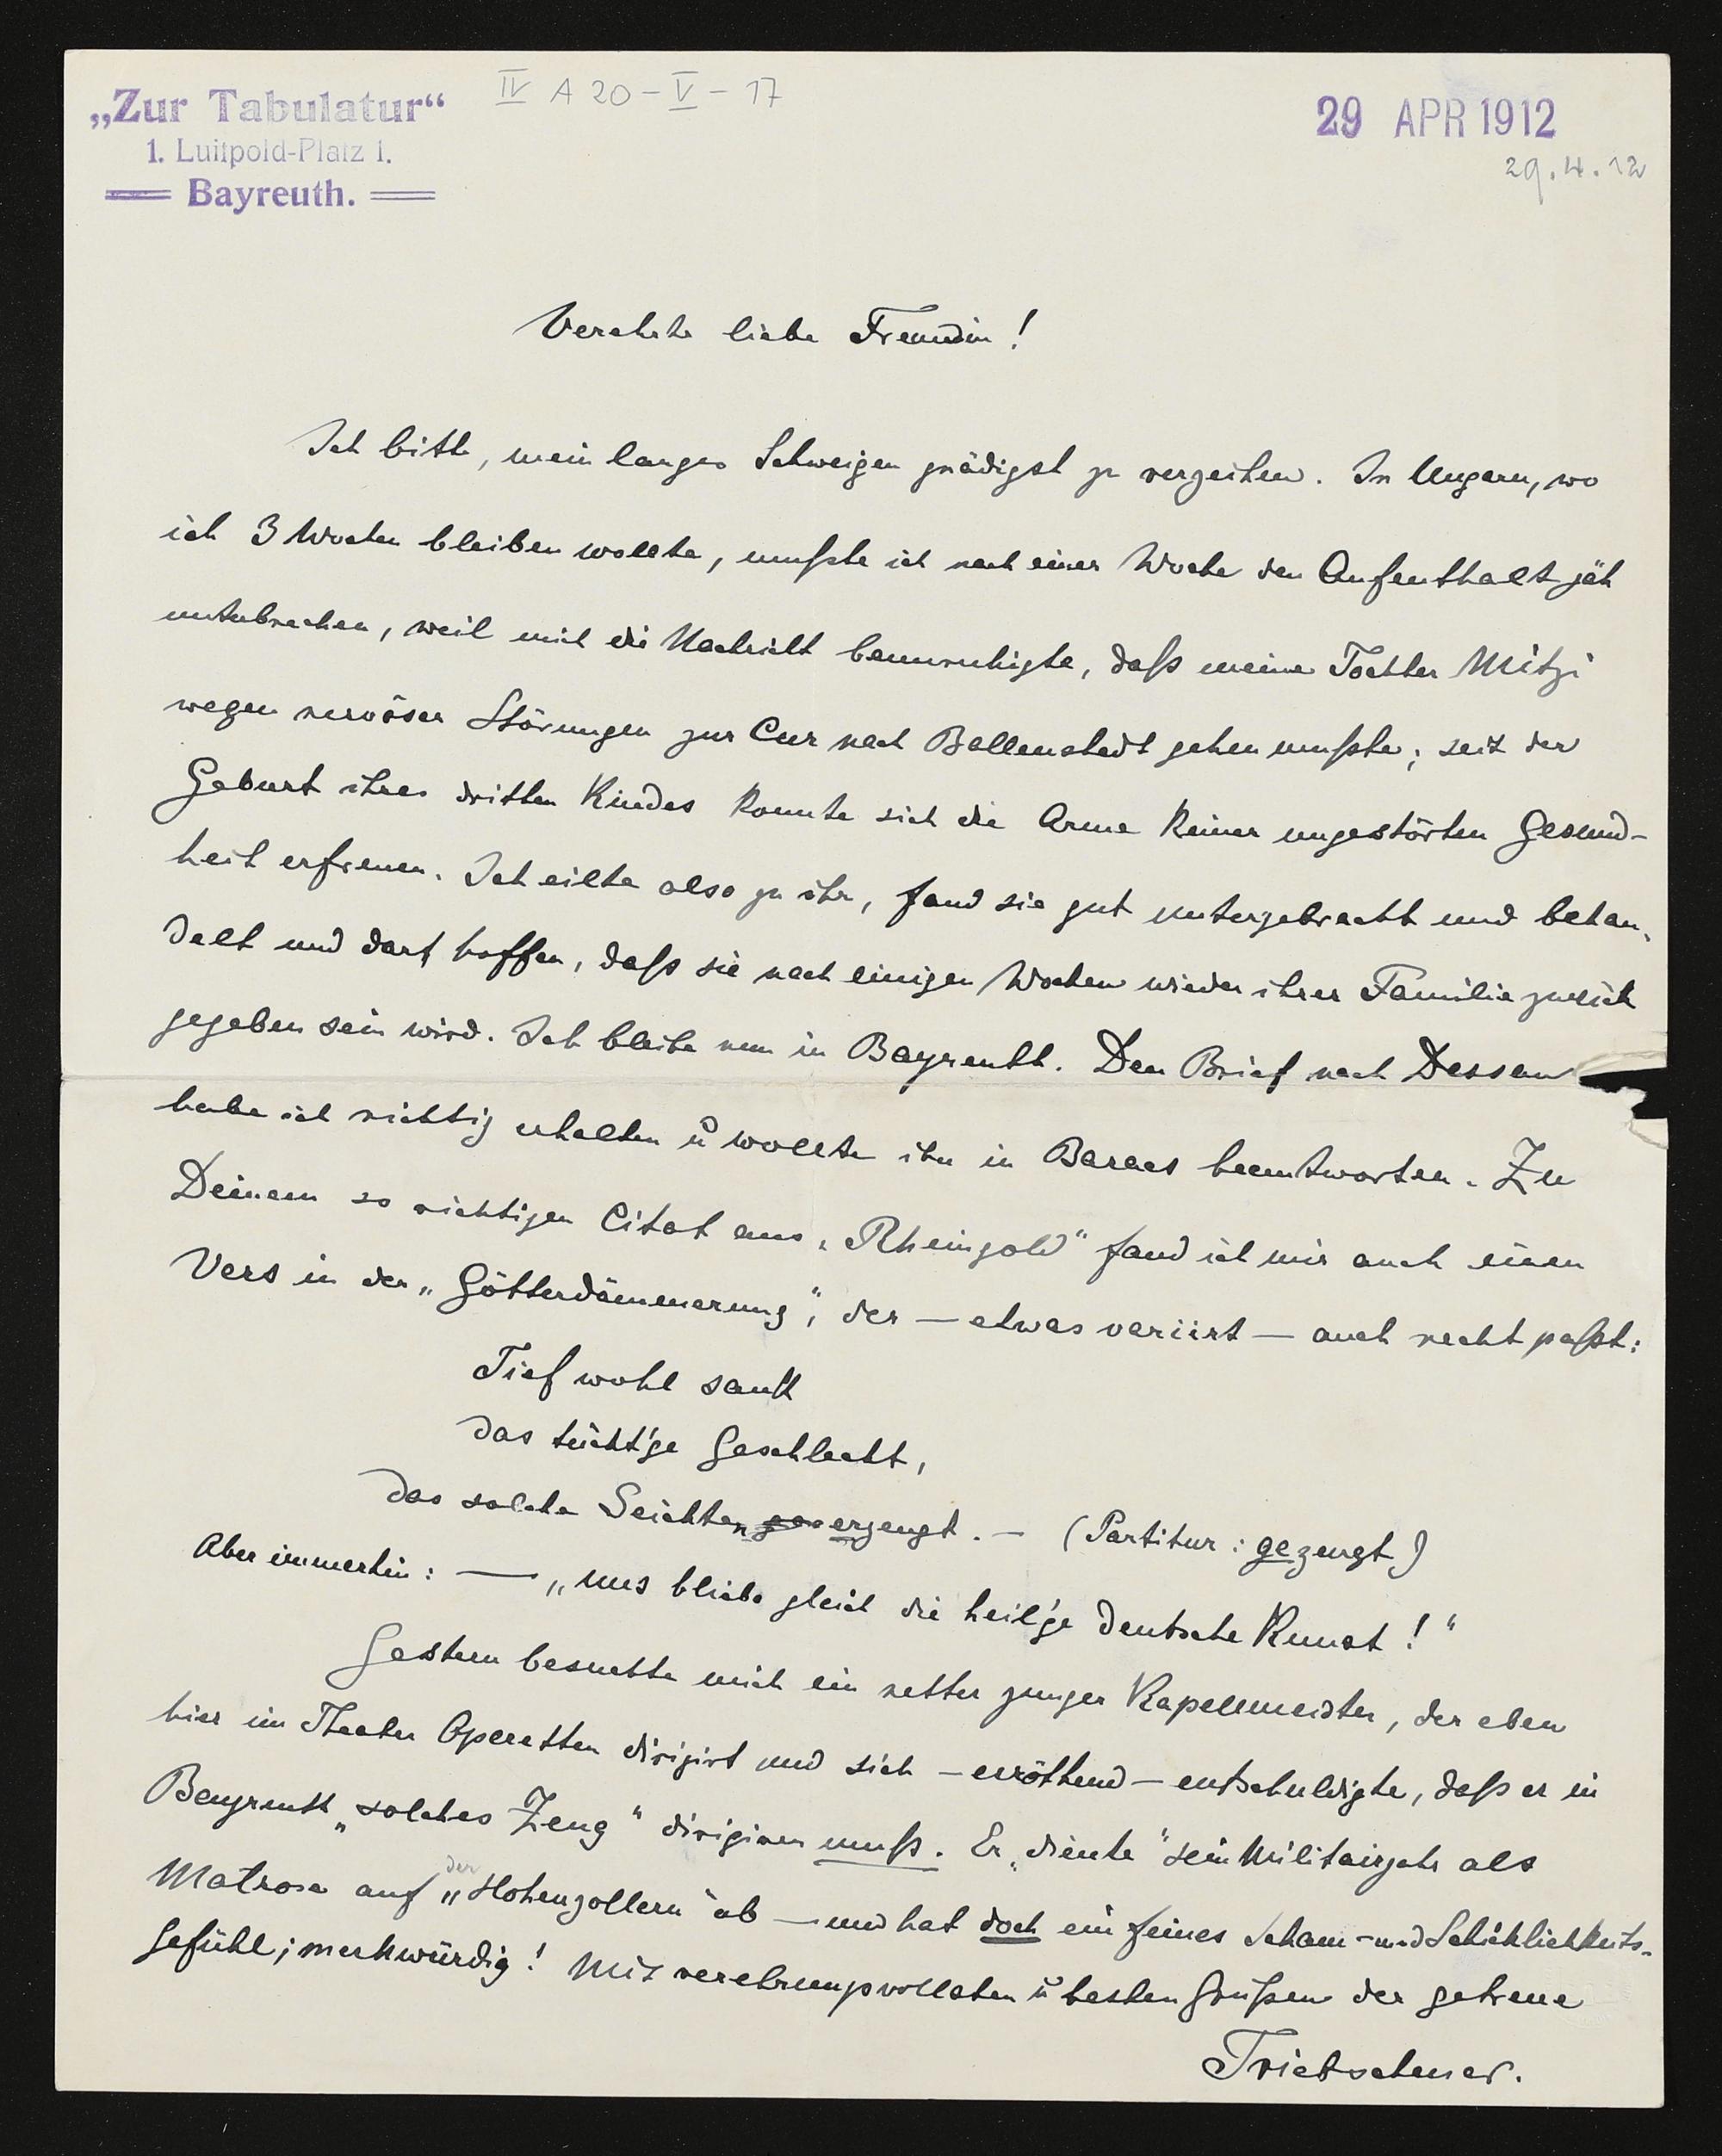 „Zur Tabulatur“
1. Luitpold-Platz 1.
Bayreuth.
IV A 20-V-17
29 APR 1912
29.4.12
Verehrte liebe Freundin!
Ich bitte, mein langes Schweigen gnädigst zu verzeihen. In Ungarn, wo
ich 3 Wochen bleiben wollte, mußte ich nach einer Woche den Aufenthalt jäh
unterbrechen, weil mich die Nachricht beunruhigte, daß meine Tochter Mitzi
wegen nervöser Störungen zur Cur nach Ballenstedt gehen mußte; seit der
Geburt ihres dritten Kindes konnte sich die Arme keiner ungestörten Gesund-
heit erfreuen. Ich eilte also zu ihr, fand sie gut untergebracht und behan-
delt und darf hoffen, daß sie nach einigen Wochen wieder ihrer Familie zurück
gegeben sein wird. Ich bleibe nun in Bayreuth. Den Brief nach Dessau
habe ich richtig erhalten u wollte ihn in Baracs beantworten. Zu
Deinem so richtigen Citat aus „Rheingold“ fand ich mir auch einen
Vers in der „Götterdämmerung“, der — etwas variirt — auch recht paßt:
Tief wohl sank
das tücht'ge Geschlecht,
das solche Seichten erzeugt. — (Partitur: gezeugt)
Aber immerhin: — „uns bliebe gleich die heil'ge Deutsche Kunst!“
Gestern besuchte mich ein netter junger Kapellmeister, der eben
hier im Theater Operetten dirigirt und sich — erröthend — entschuldigte, daß er in
Bayreuth „solches Zeug“ dirigiren muß. Er „diente“ sein Militairjahr als
Matrose auf der „Hohenzollern“ ab — und hat doch ein feines Scham- und Schicklichkeits-
gefühl; merkwürdig! Mit verehrungsvollsten u besten Grüßen der getreue